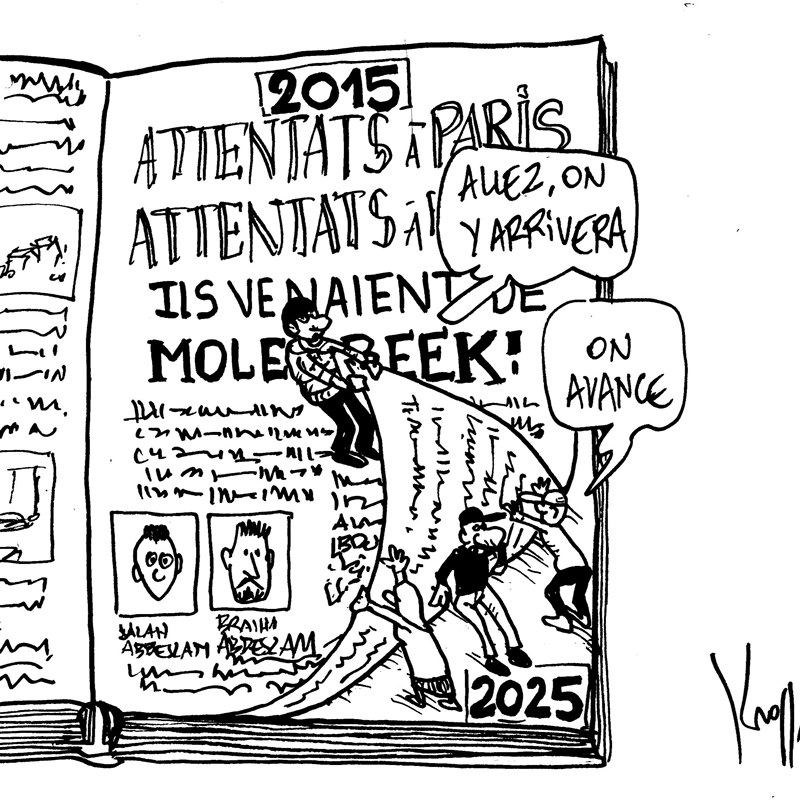 2015
ATTENTATS à PARIS
ATTENTATS à P
ILS VENAIENT DE
MOLE BEEK!
ALLEZ, ON
Y ARRIVERA
ON
AVANCE
SALAH
ABDESLAM
BRAIHI
ABDESLAM
2025
Kroll